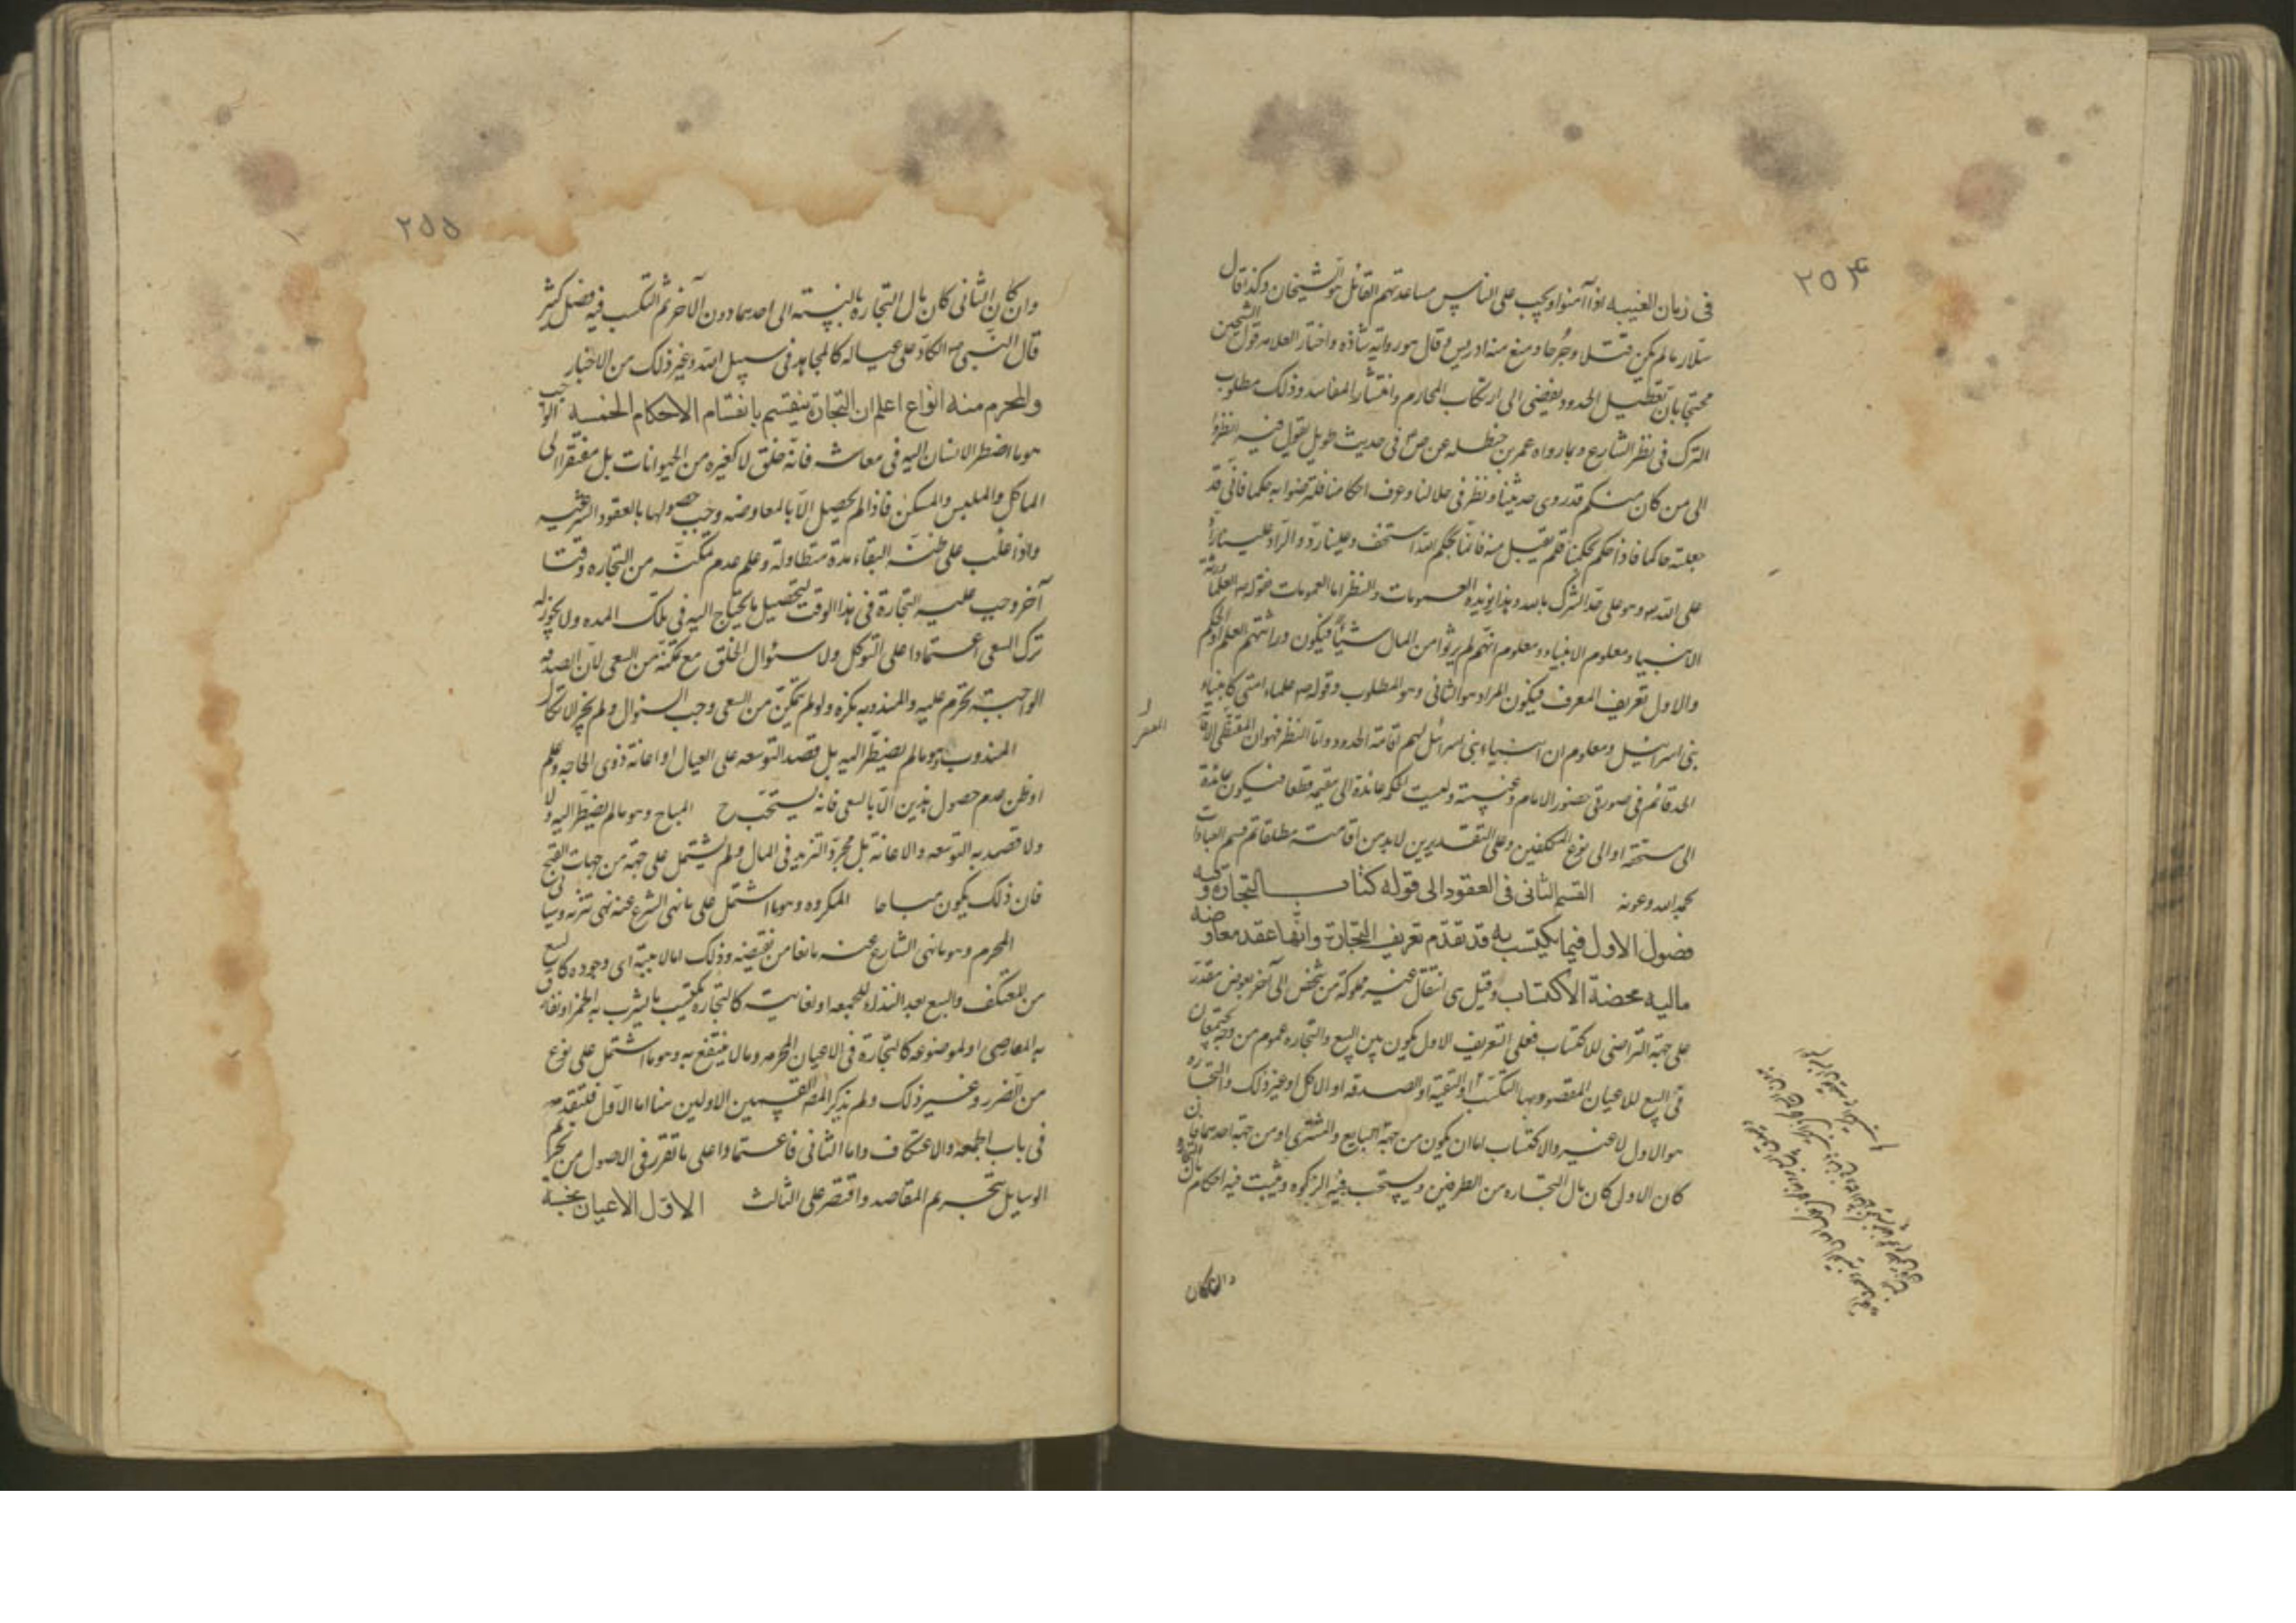 ۲۵۴
فى زمان الغيبه اذا آمنوا ويجب على الناس مساعدتهم القائل هو الشيخان وكذا قال
سلار ما لم يكن قتلا وجرحا ومنع منه ادريس وقال هو رواية شاذه واختار العلامه قول الشيخين
محتجا بان تعطيل الحدود يفضى الى ارتكاب المحارم وانتشار المفاسد وذلك مطلوب
الترك فى نظر الشارع وبما رواه عمر بن حنظله عن ص فى حديث طويل يقول فيه انظروا
الى من كان منكم قد روى حديثنا ونظر فى حلالنا وعرف احكامنا فلترضوا به حكما فانى قد
جعلته حاكما فاذا حكم بحكمنا فلم يقبل منه فانما بحكم الله استخف وعلينا رد والراد علينا رادّ
على الله وهو على حد الشرك بالله وهذا يؤيده العمومات والنظر اما العمومات فقوله العلماء ورثة
الانبياء ومعلوم الانبياء ومعلوم انهم لم يرثوا من المال شيئا فيكون وراثتهم العلم او الحكم
والاول تعريف المعرف فيكون المراد هو الثانى وهو المطلوب وقوله علماء امتى كانبياء
بنى اسرائيل ومعلوم ان انبياء بنى اسرائيل لهم اقامة الحدود واما النظر فهو ان المقتضى لاقامة
الحد قائم فى صورتى حضور الامام وغيبته وليست الحكمة عائدة الى مقيمه قطعا فيكون عائدة
الى مستحقه او الى نوع المكلفين وعلى التقديرين لا بد من اقامته مطلقا تم قسم العبادات
بحمد الله وعونه القسم الثانى فى العقود الى قوله كتاب التجارة وفيه
فصول الاول فيما يكتسب به قد تقدم تعريف التجارة وانها عقد معاوضه
ماليه محضة الاكتساب وقيل هى انتقال عين مملوكة من شخص الى آخر بعوض مقدر
على جهة التراضى للاكتساب فعلى التعريف الاول يكون بين البيع والتجاره عموم من وجه يجتمعان
فى البيع للاعيان المقصود بها التكسب او القنية او الصدقه او الاكل او غير ذلك والتجاره
هو الاول لا غير والاكتساب اما ان يكون من جهة البايع والمشترى او من جهة احدهما فان
كان الاول كان مال التجاره من الطرفين ويستحب فيه الزكوة ويثبت فيه احكام مال التجارة
وان كان
۲۵۵
وان كان الثانى كان مال التجاره بالنسبته الى احدهما دون الآخر ثم التكسب فيه فضل كثير
قال النبى الكاد على عياله كالمجاهد فى سبيل الله وغير ذلك من الاخبار
والمحرم منه انواع اعلم ان التجارة ينقسم بانقسام الاحكام الخمسه الواجب
هو ما اضطر الانسان اليه فى معاشه فانه خلق لا كغيره من الحيوانات بل مفتقرا الى
الماكل والملبس والمسكن فاذا لم يحصل الا بالمعاوضه وجب حصولها بالعقود الشرعيه
واذا غلب على ظنه البقاء مدة متطاولة وعلم عدم تمكنه من التجاره وقتا
آخر وجب عليه التجارة فى هذا الوقت لتحصيل ما يحتاج اليه فى تلك المده ولا يجوز له
ترك السعى اعتمادا على التوكل ولا سئوال الخلق مع تمكنه من السعى لان الصدقه
الواجبة تحرم عليه والمندوبه تكره ولو لم يتمكن من السعى وجب السئوال ولم يجز الاتكال
المندوب وهو ما لم يضطر اليه بل قصد التوسعه على العيال او اعانة ذوى الحاجه وعلم
او ظن عدم حصول هذين الا بالسعى فانه يستحب ح المباح وهو ما لم يضطر اليه ولا
ولا قصد به التوسعه والاعانة بل مجرد التزيد فى المال ولم يشتمل على جهة من جهات القبح
فان ذلك يكون مباحا المكروه وهو ما اشتمل على ما نهى الشرع عنه نهى تنزه وسياتى
المحرم وهو ما نهى الشارع عنه مانعا من نقيضه وذلك اما لا هيته اى وجوده كالبيع
من المعتكف والبيع بعد النداء للجمعه او لغايته كالتجارة بكسب ما يشرب به الخمر او نفاق
به المعاصى او لموضوعه كالتجارة فى الاعيان المحرمه وما لا ينتفع به وهو ما اشتمل على نوع
من الضرر وغير ذلك ولم يذكر المص القسمين الاولين هنا اما الاول فلتقدمه
فى باب الجمعه والاعتكاف واما الثانى فاعتمادا على ما تقرر فى الاصول من تحريم
الوسايل بتحريم المقاصد واقتصر على الثالث الاول الاعيان نجسة